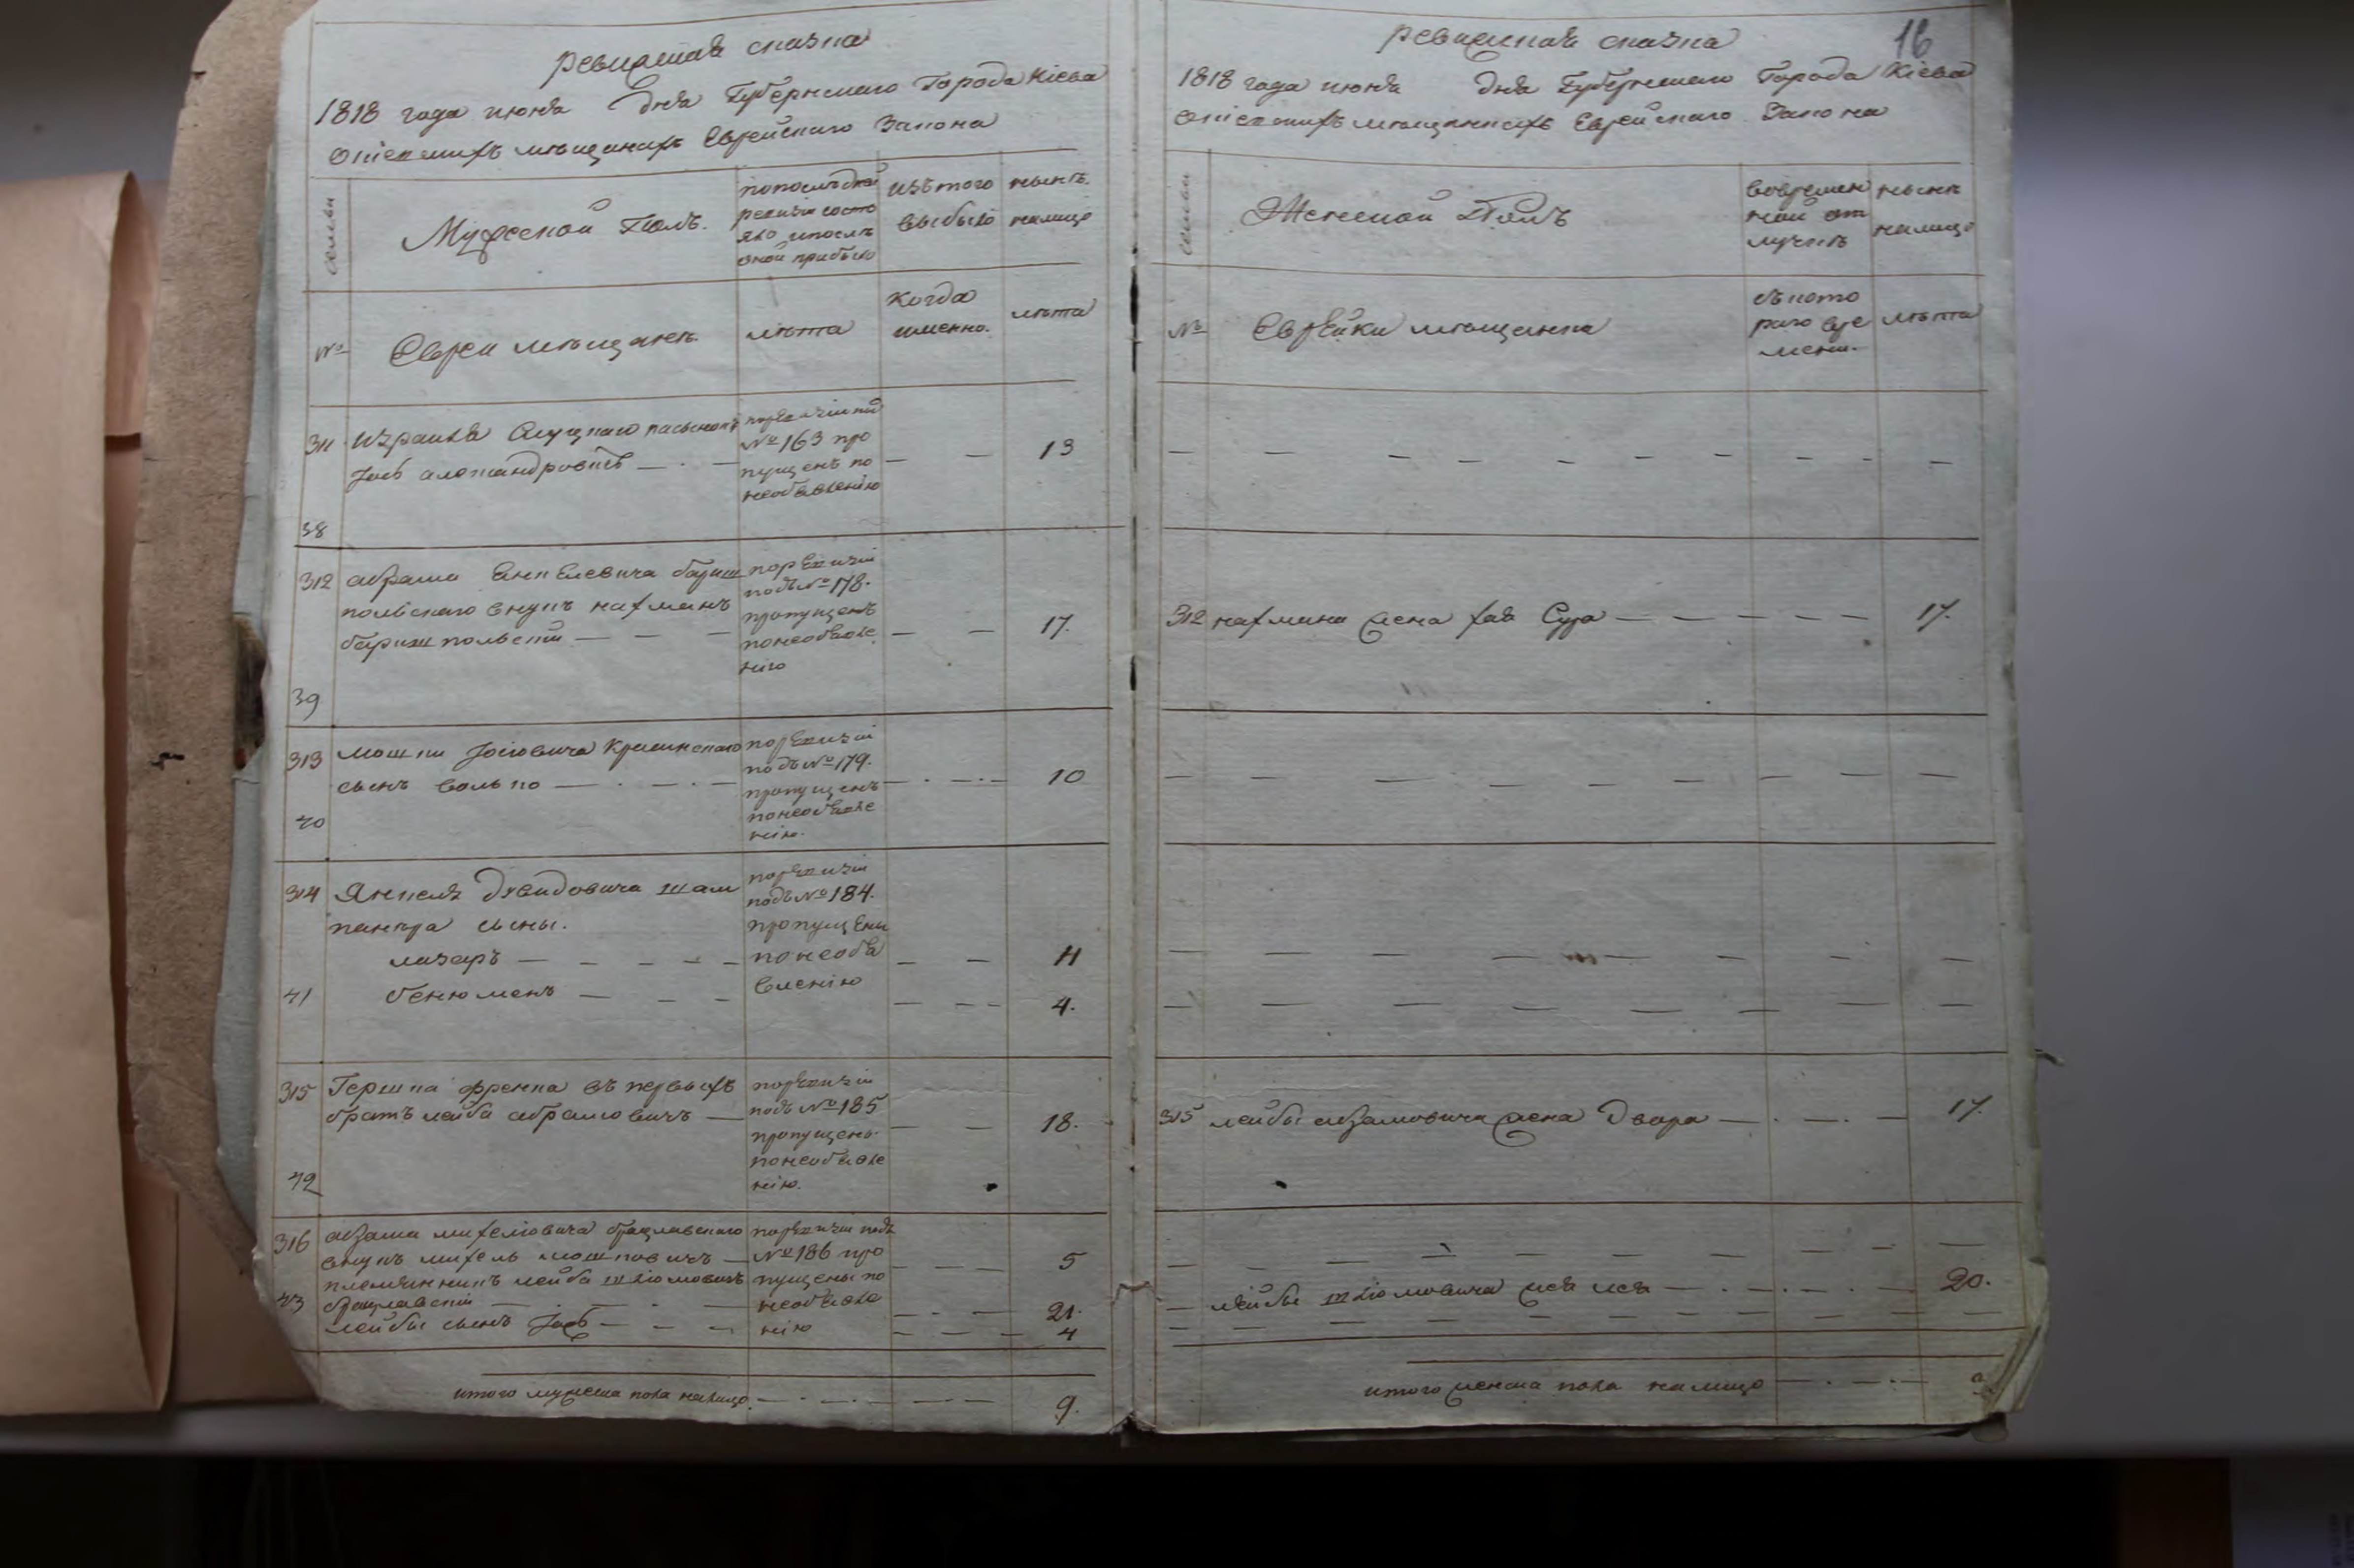 ревизская сказка
1818 года июня дня Губернского Города Кіева
о кіевскихъ мещанахъ Еврейского Закона
семьи
Мужеской Полъ.
по последней
ревизіи состо
яло и после
оной прибыло
изъ того
выбыло
ныне
налицо
№
Евреи мещане
лета
когда
именно.
лета
311
Израиля Слуцкаго пасынокъ
Іось александровичъ
по ревизіи подъ
№ 163 про
пущенъ по
необявленію
13
38
312
абрама Янкелевича бориш
польскаго внукъ нахманъ
боришпольскій
по ревизіи
подъ № 178.
пропущенъ
по необявле
нію
17.
39
313
мошки Јосіовича Крашинскаго
сынъ волько
по ревизіи
подъ № 179.
пропущенъ
по необявле
нію.
10
40
314
Янкеля Давидовича шам
панера сыны.
лазаръ
бенюменъ
по ревизіи
подъ № 184.
пропущены
по необя
вленію
11
4.
41
315
Гершка френка въ первыхъ
братъ лейба абрамовичъ
по ревизіи
подъ № 185
пропущенъ
по необявле
нію.
18.
42
316
абрама михеліовича брацлавскаго
внукъ михель мошковичъ
племянникъ лейба шліомовичъ
брацлавскій
лейбы сынъ Іось
по ревизіи подъ
№ 186 про
пущены по
необявле
нію
5
21.
4
43
итого мужеска пола налицо
9.
16
ревизская сказка
1818 года июня дня Губернского Города Кіева
о кіевскихъ мещанкахъ Еврейского Закона
семьи
Женской Полъ
во времен
ной от
лучке
ныне
налицо
№
Еврейки мещанки
съ кото
раго вре
мени.
лета
312 нахмана жена хая Сура 17.
315 лейбы абрамовича жена Двора 17.
лейбы шліомовича жена 20.
итого женска пола налицо